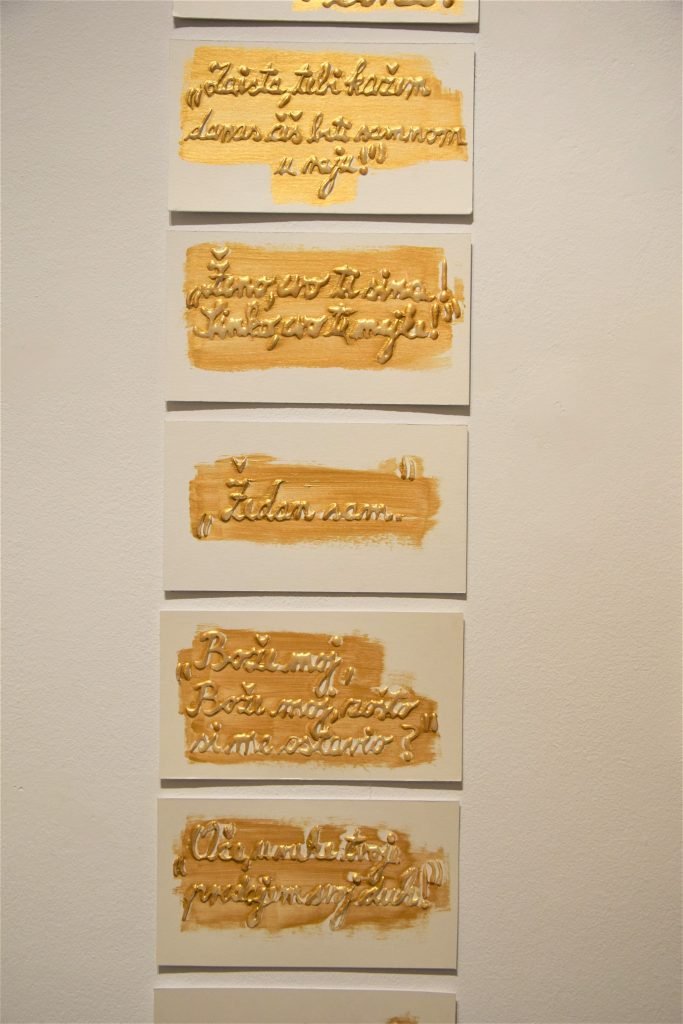 „Zaista, tebi kažem
danas ćeš biti samnom
u raju!"
„Ženo, evo ti sina!
Sinko, evo ti majke!"
„Žedan sam."
„Bože moj,
Bože moj, zašto
si me ostavio?"
„Oče, u ruke tvoje
predajem svoj duh!"